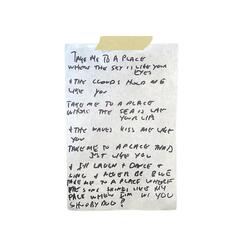 TAKE ME TO A PLACE
WHERE THE SKY IS LIKE YOUR
EYES
& THE CLOUDS HOLD ME
LIKE YOU
TAKE ME TO A PLACE
WHERE THE SEA IS LIKE
YOUR LIPS
& THE WAVES KISS ME LIKE
YOU
TAKE ME TO A PLACE THATS
JUST LIKE YOU
& I'LL LAUGH & DANCE &
SING & NEVER BE BLUE
TAKE ME TO A PLACE
LIKE MY
FACE WHEN I'M W/ YOU